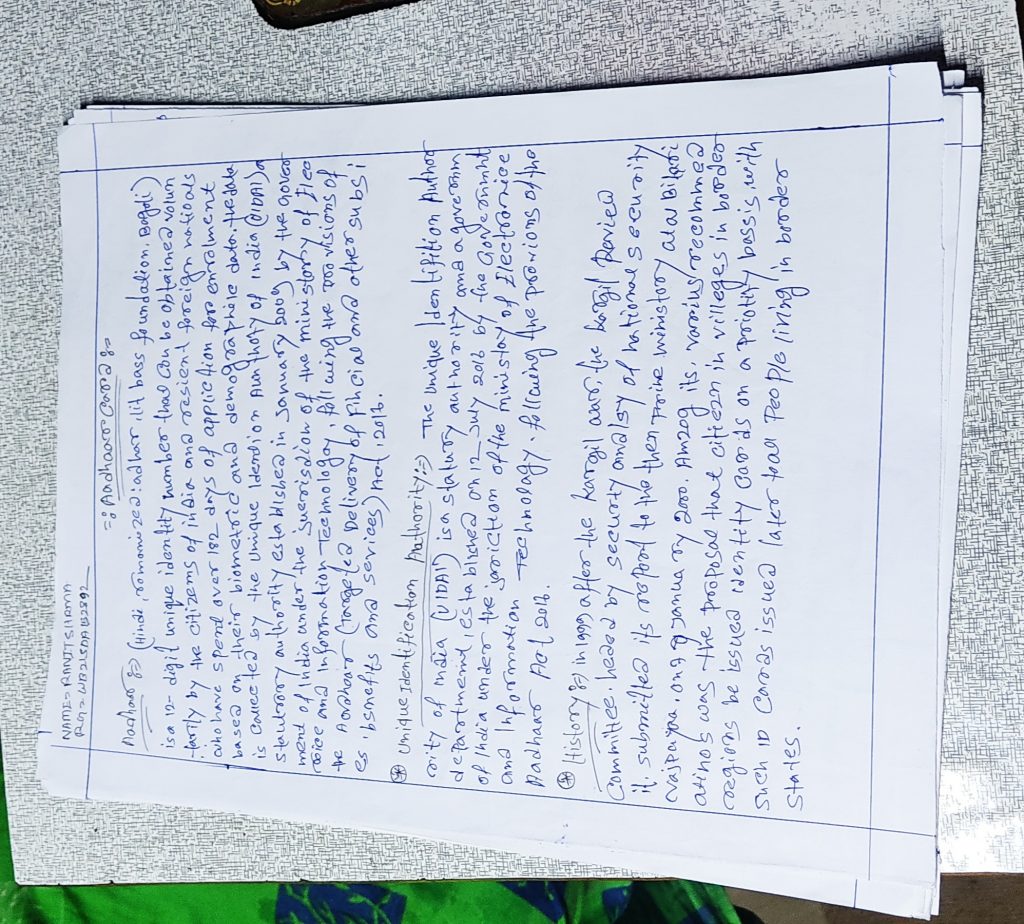 NAME:- RANJIT SHARMA
=: Aadhaar Card :=
Aadhaar := (Hindi, romanized: adhar, lit bass foundation, Bagali)
is a 12-digit unique identity number that can be obtained volun
tarily by the citizens of india and resient foreign nationals
who have spend over 182 days of application for enrolment
based on their biometric and demographic data. the data
is collected by the unique Idendion Authority of india (UIDAI) a
statutory authority established in January 2009 by the gover
ment of India under the juerisdion of the ministory of Elec
roice and Information Technology, following the provisions of
the Aadhaar (Targeted Delivery of fhicial and other subsi
es bsnefits and sevices) Act, 2016.
Unique Identification Authority:- The unique Identifition Author
rity of india (UIDAI) is a statury authority and a governm
departmend, established on 12 July 2016 by the Government
of India under the jurriction of the ministary of Electronice
and Information Technology. following the provions of the
Aadhaar Act 2016.
History := in 1999 after the kargil war, the kargil Review
committee. headed by security analsy of national security
it. submitted its report to the then prime ministory atal Bihari
vajpaypa. on January 2000. Among its. varoius recolmned
ations was the proposal that citizen in villeges in border
regions be issued identity cards on a priotiy bassis, with
such ID cards issued later to all people living in border
states.